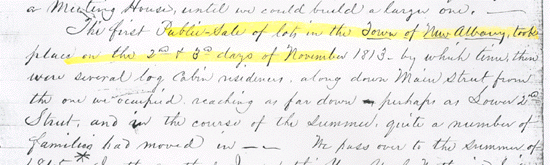 a Meeting House, until we could build a larger one. —
The first Public-Sale of lots in the Town of New Albany, took
place on the 2d & 3d days of November 1813 - by which time, then
were several log cabin residences, along down Main Street from
the one we occupied, reaching as far down perhaps as Lower 2d
Street, and in the course of the Summer, quite a number of
families had moved in — — We pass over to the Summer of